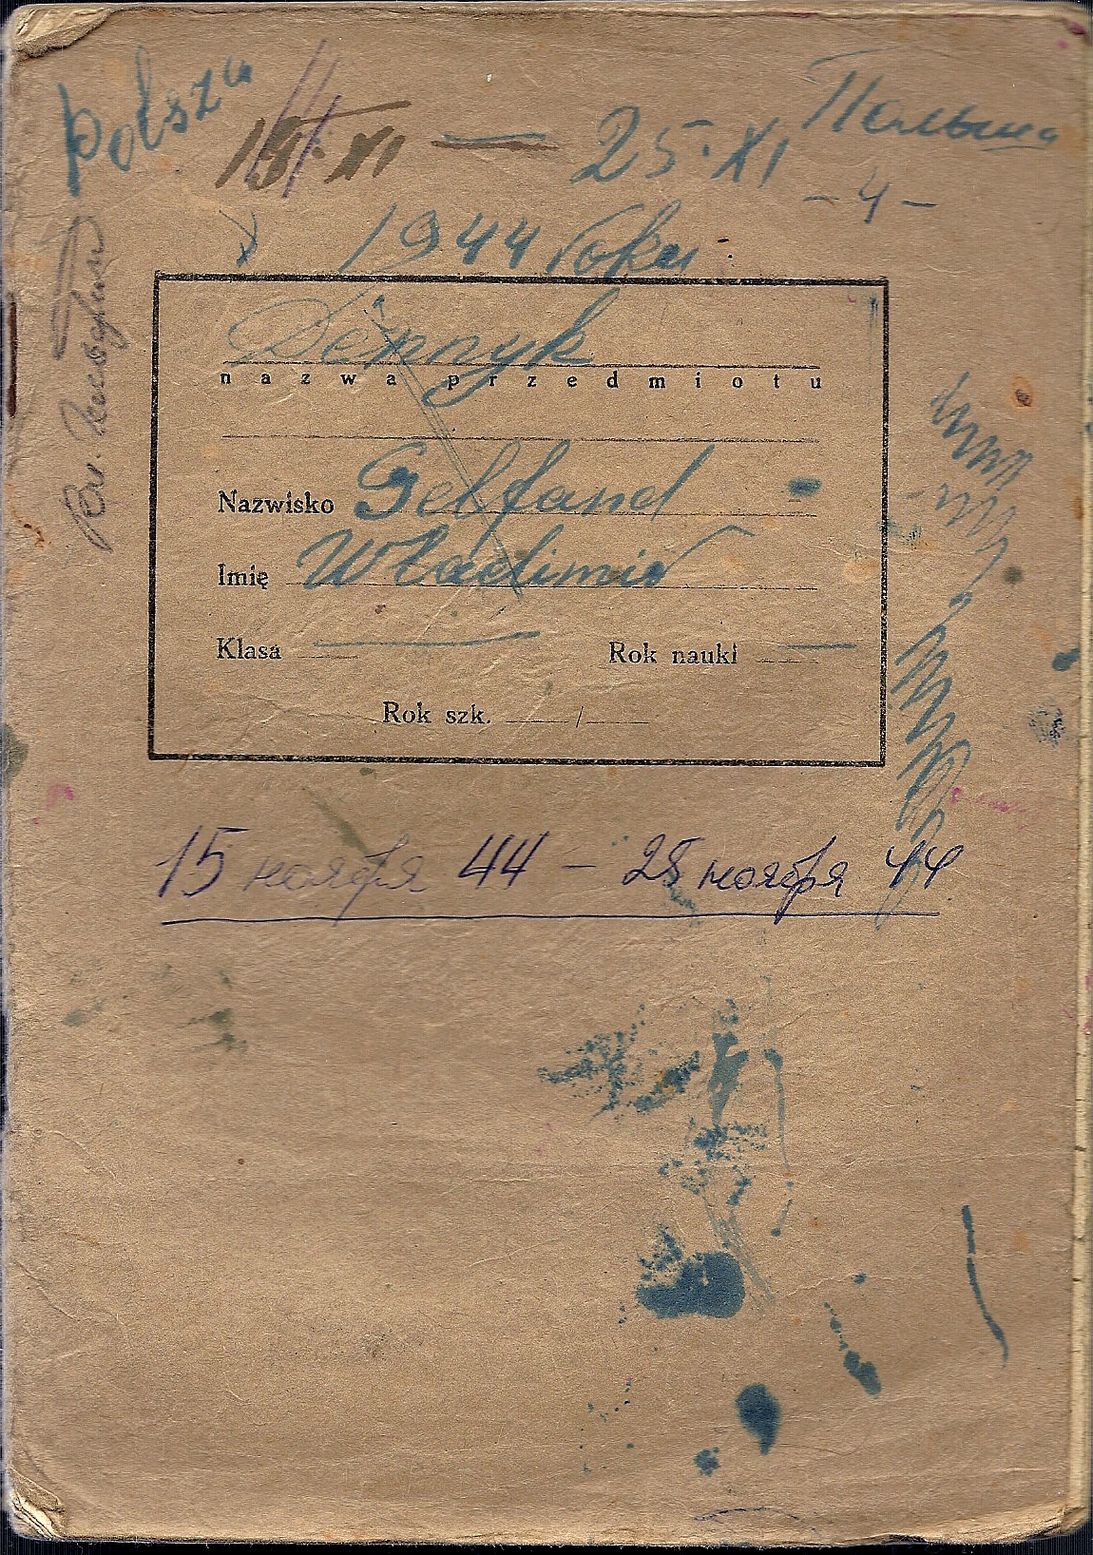 Polsza
Польша
15.XI — 25.XI
-4-
1944 roku
Dennyk
nazwa przedmiotu
Nazwisko Gelfand
Imię Władimir
Klasa — Rok nauki —
Rok szk. /
Вл. Гельфанд
15 ноября 44 – 25 ноября 44